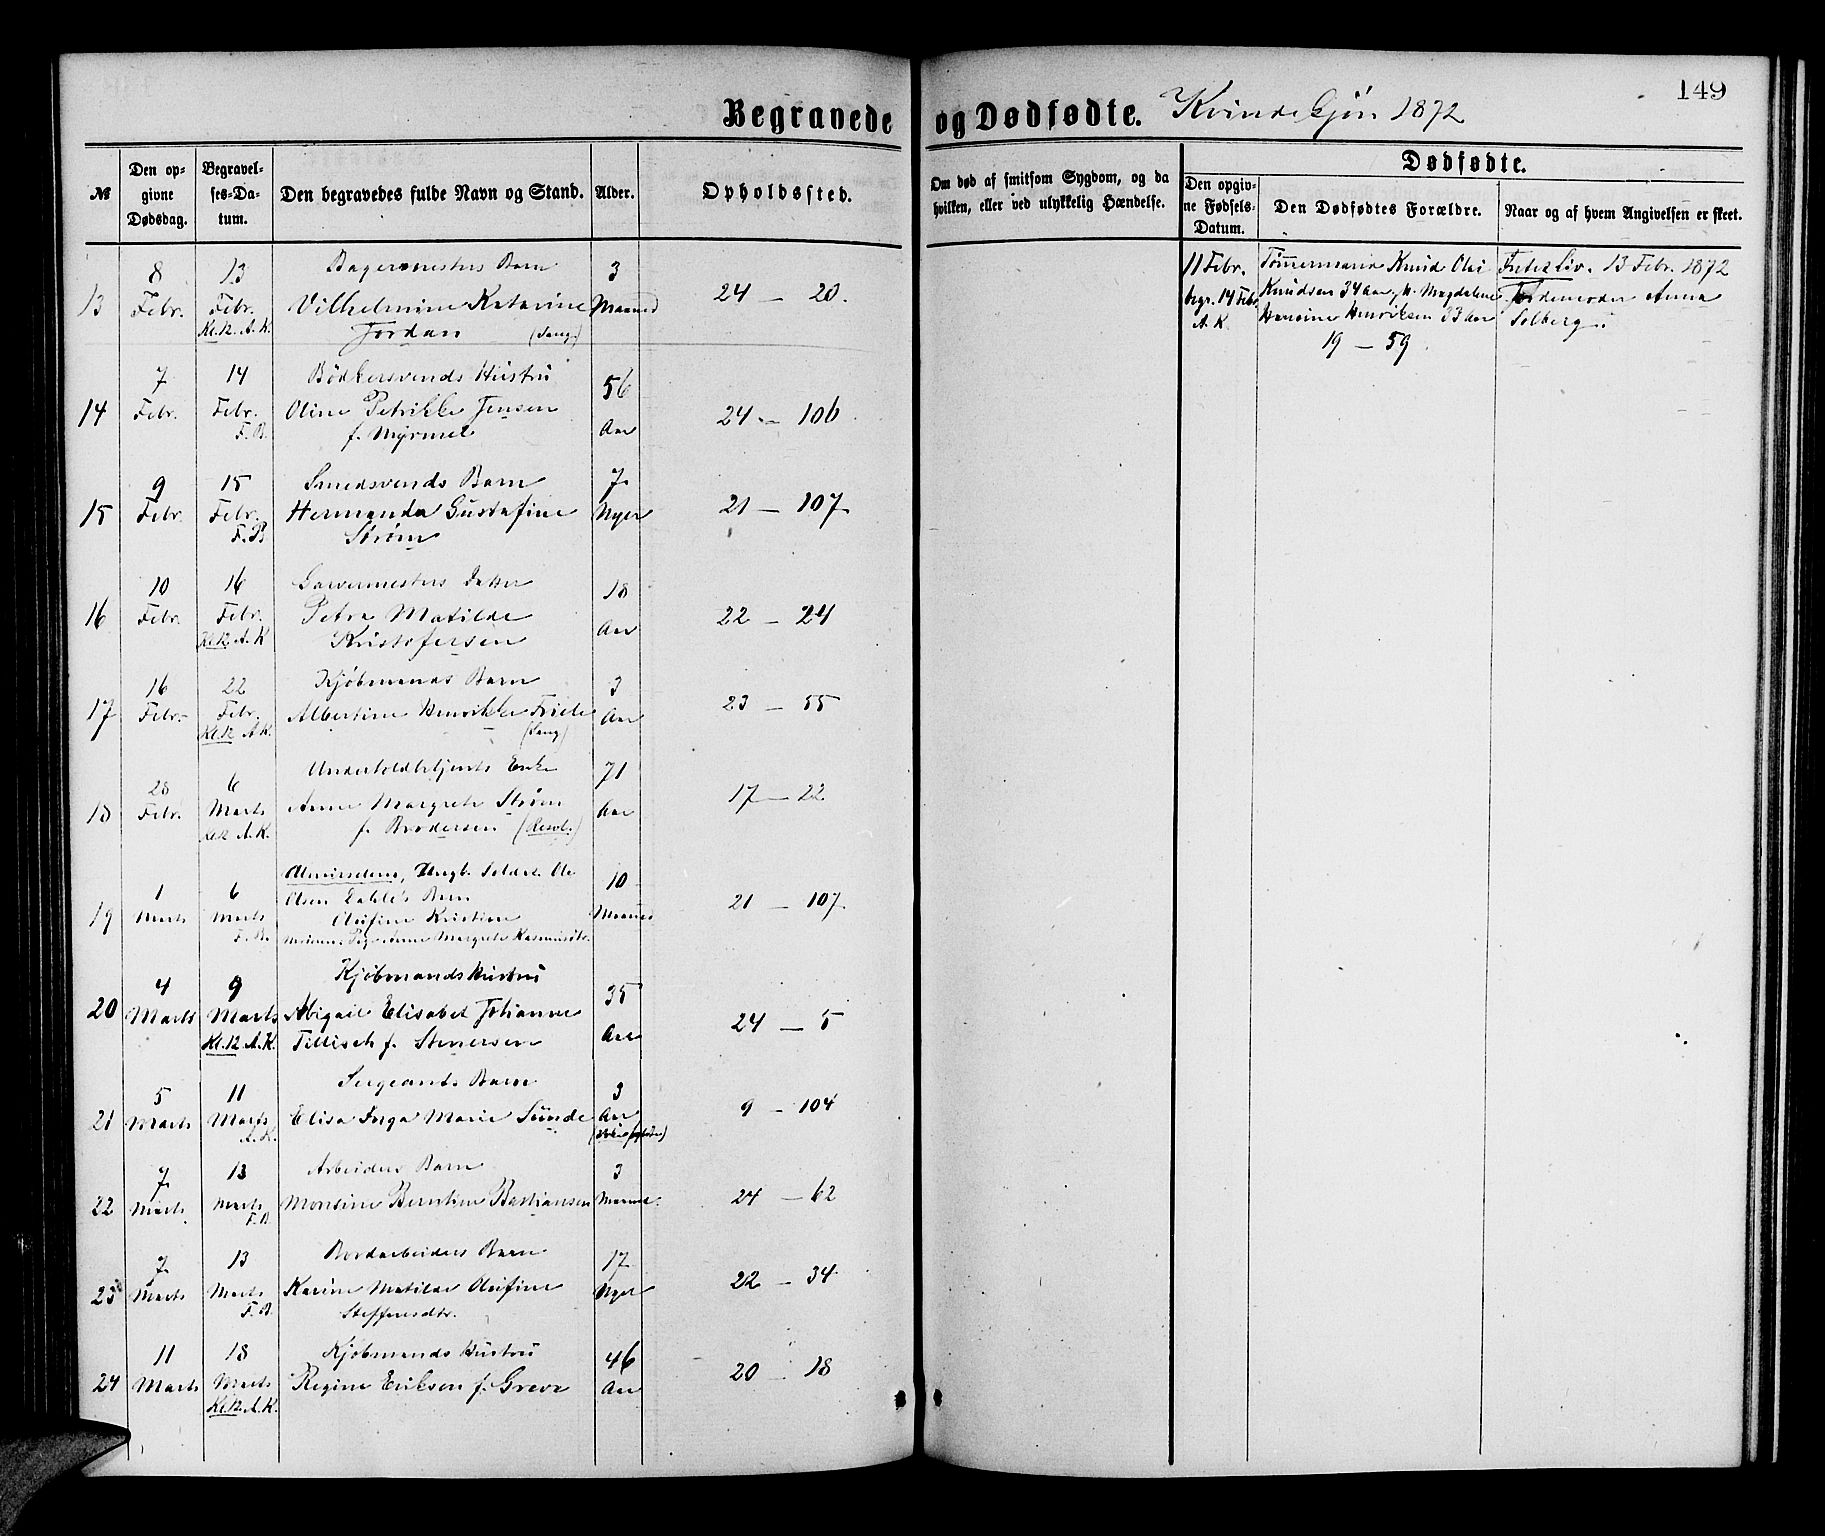 149
Begravede og Dødfødte. Kvindekjøn 1872
№
Den opgivne Dødsdag.
Begravelses-Datum.
Den begravedes fulde Navn og Stand.
Alder.
Opholdssted.
Om død af smitsom Sygdom, og da hvilken, eller ved ulykkelig Hændelse.
Dødfødte.
Den opgivne Fødsels-Datum.
Den Dødfødtes Forældre.
Naar og af hvem Angivelsen er skeet.
13 8 Febr. 13 Febr. Kl. 12 A. K.
Bagermesters Barn
Vilhelmine Katarine
Jordan (Sang)
3 Maaned
24 — 20.
11 Febr.
begr. 14 Febr.
A. K.
Tømmermand Knud Olai
Knudsen 34 Aar, Magdalene
Hansine Henriksen 33 Aar
19 — 59
13 Febr. 1872
Jordemoder Anna
Solberg.
14 7 Febr. 14 Febr. F. B.
Bødkersvends Hustru
Oline Petrikke Jensen
f. Myrmel
56 Aar
24 — 106
15 9 Febr. 15 Febr. F. B
Smedsvends Barn
Hermanda Gustafine
7 Uger
21 — 107
16 10 Febr. 16 Febr. Kl. 12 A. K
Garvermesters Datter
Petra Matilde
Kristofersen
18 Aar
22 — 24
17 16 Febr. 22 Febr. Kl. 12 A. K.
Kjøbmands Barn
Albertine Henrikke Friele
(Sang)
3 Aar
23 — 55
18 28 Febr. 6 Marts Kl. 12 A. K.
Enke
Anne Margrete Strøm
f. Brodersen
71 Aar
17 — 22
19 1 Marts 6 Marts F. B.
Ungk. Soldat. Ole
Olsen Dahle's Barn
Olufine Kristine
Pige Anne Margrete Rasmusdtr.
10 Maaned
21 — 107.
20 4 Marts 9 Marts Kl. 12 A. K.
Kjøbmands Hustru
Abigail Elisabet Johanne
Tillisch f. Stenersen
35 Aar
24 — 5
21 5 Marts 11 Marts A. K.
Sergeants Barn
Elisa Inga Marie Sunde
3 Aar
9 — 104
22 7 Marts 13 Marts F. B.
Arbeiders Barn
Monsine Berntine Bastiansen
3 Maaned.
24 — 62
23 7 Marts 13 Marts F. B.
Bordarbeiders Barn
Karine Matilde Olufine
Steffensdtr.
17 Uger
22 — 34
24 11 Marts 18 Marts Kl. 12. A. K.
Kjøbmands Hustru
Regine Erikson f. Greve
46 Aar
20 — 18